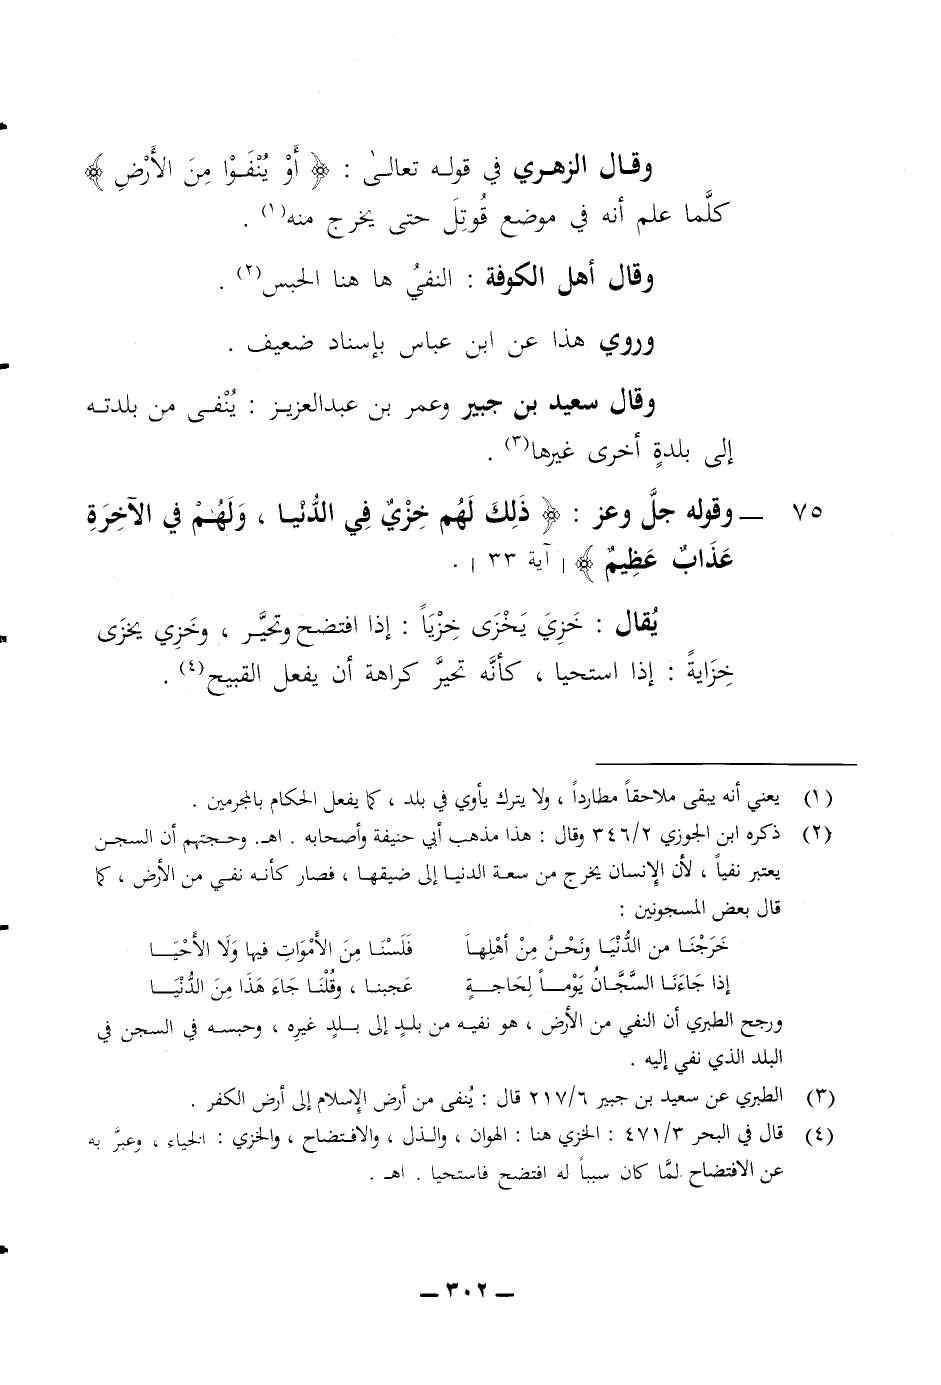 وقال الزهري في قوله تعالىٰ : ﴿ أَوْ يُنْفَوْا مِنَ الأَرْضِ ﴾
كلَّما علم أنه في موضع قُوتِلَ حتى يخرج منه(١) .
وقال أهل الكوفة : النفيُ ها هنا الحبس(٢) .
وروي هذا عن ابن عباس بإسناد ضعيف .
وقال سعيد بن جبير وعمر بن عبدالعزيز : يُنْفى من بلدته
إلى بلدةٍ أخرى غيرها(٣) .
٧٥ ــ وقوله جلَّ وعز : ﴿ ذَلِكَ لَهُم خِزْيٌ فِي الدُّنْيا ، وَلَهُمْ في الآخِرَةِ
عَذَابٌ عَظِيمٌ ﴾ [ آية ٣٣ ] .
يُقال : خَزِيَ يَخْزَى خِزْيَاً : إذا افتضح وتحيَّر ، وخَزِي يخزَى
خِزَايةً : إذا استحيا ، كأنَّه تحيَّر كراهة أن يفعل القبيح(٤) .
(١) يعني أنه يبقى ملاحقاً مطارداً ، ولا يترك يأوي في بلد ، كما يفعل الحكام بالمجرمين .
(٢) ذكره ابن الجوزي ٣٤٦/٢ وقال : هذا مذهب أبي حنيفة وأصحابه . اهـ. وحجتهم أن السجن
يعتبر نفياً ، لأن الإنسان يخرج من سعة الدنيا إلى ضيقها ، فصار كأنه نفي من الأرض ، كما
قال بعض المسجونين :
خَرَجْنَا من الدُّنْيَا ونَحْنُ مِنْ أهْلِها فَلَسْنَا مِنَ الأَمْوَاتِ فيها وَلَا الأَحْيَا
إذا جَاءَنَا السَّجَّانُ يَوْماً لِحَاجةٍ عَجبنا ، وقُلْنَا جَاءَ هَذَا مِنَ الدُّنْيَا
ورجح الطبري أن النفي من الأرض ، هو نفيه من بلدٍ إلى بلدٍ غيرِه ، وحبسه في السجن في
البلد الذي نفي إليه .
(٣) الطبري عن سعيد بن جبير ٢١٧/٦ قال : يُنفى من أرض الإسلام إلى أرض الكفر .
(٤) قال في البحر ٤٧١/٣ : الخزي هنا : الهوان ، والذل ، والافتضاح ، والخزي : الحياء ، وعبَّر به
عن الافتضاح لمَّا كان سبباً له افتضح فاستحيا . اهـ .
ــ ٣٠٢ ــ